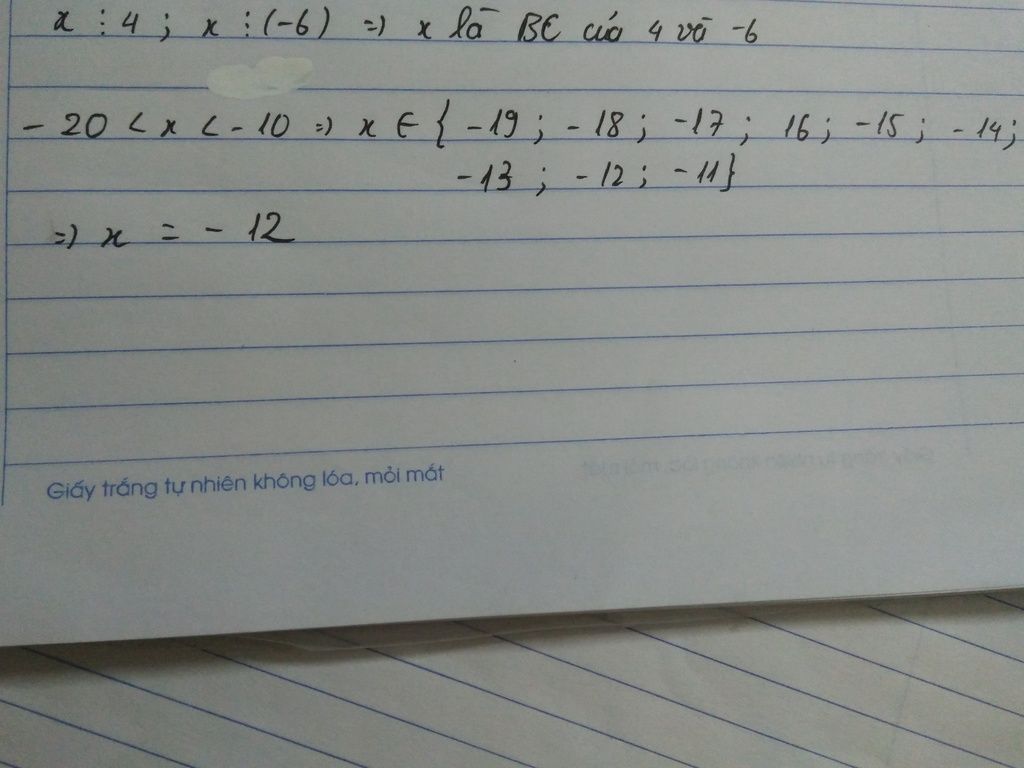 x ⋮ 4 ; x ⋮ (-6) => x là BC của 4 và -6
- 20 < x < - 10 => x ∈ { -19 ; - 18 ; -17 ; 16 ; -15 ; - 14 ;
-13 ; - 12 ; - 11 }
=> x = - 12
Giấy trắng tự nhiên không lóa, mỏi mắt